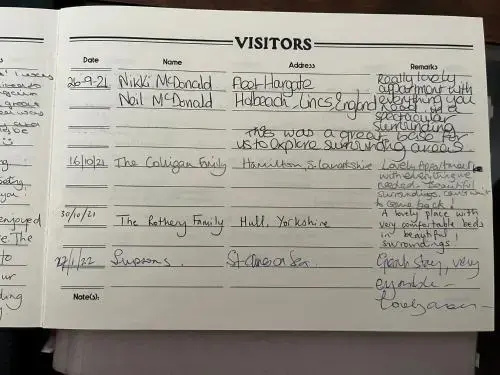 VISITORS
Date Name Address Remarks
26-9-21 Nikki McDonald Fleet Hargate Really lovely
Neil McDonald Holbeach, Lincs, England
appartment with
everything you
need and a
spectacular
surrounding
This was a great base for
us to explore surrounding areas
16/10/21 The Colligan Family Hamilton, S. Lanarkshire Lovely Appartment
with everything we
needed. Beautiful
surroundings. Can't wait
to come back!
30/10/21 The Rothery Family Hull, Yorkshire
A lovely place with
very comfortable beds
in beautiful
surroundings!
1/22 Simpsons. St Annes on Sea. Great stay, very
enjoyable -
Lovely area -
Note(s):
enjoyed
The
to
our